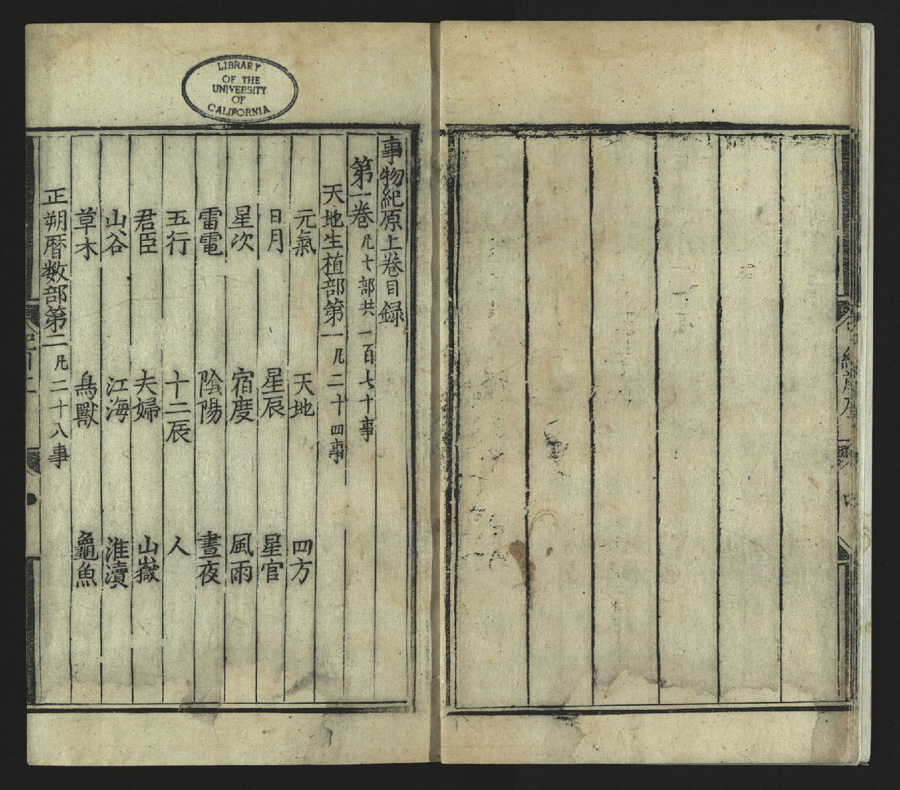 LIBRARY
OF THE
UNIVERSITY
OF
CALIFORNIA
事物紀原上卷目録
第一卷 凡七部共一百七十事
天地生植部第一 凡二十四事
元氣 天地 四方
日月 星辰 星官
星次 宿度 風雨
雷電 陰陽 晝夜
五行 十二辰 人
君臣 夫婦 山嶽
山谷 江海 淮瀆
草木 鳥獸 龜魚
正朔曆数部第二 凡二十八事